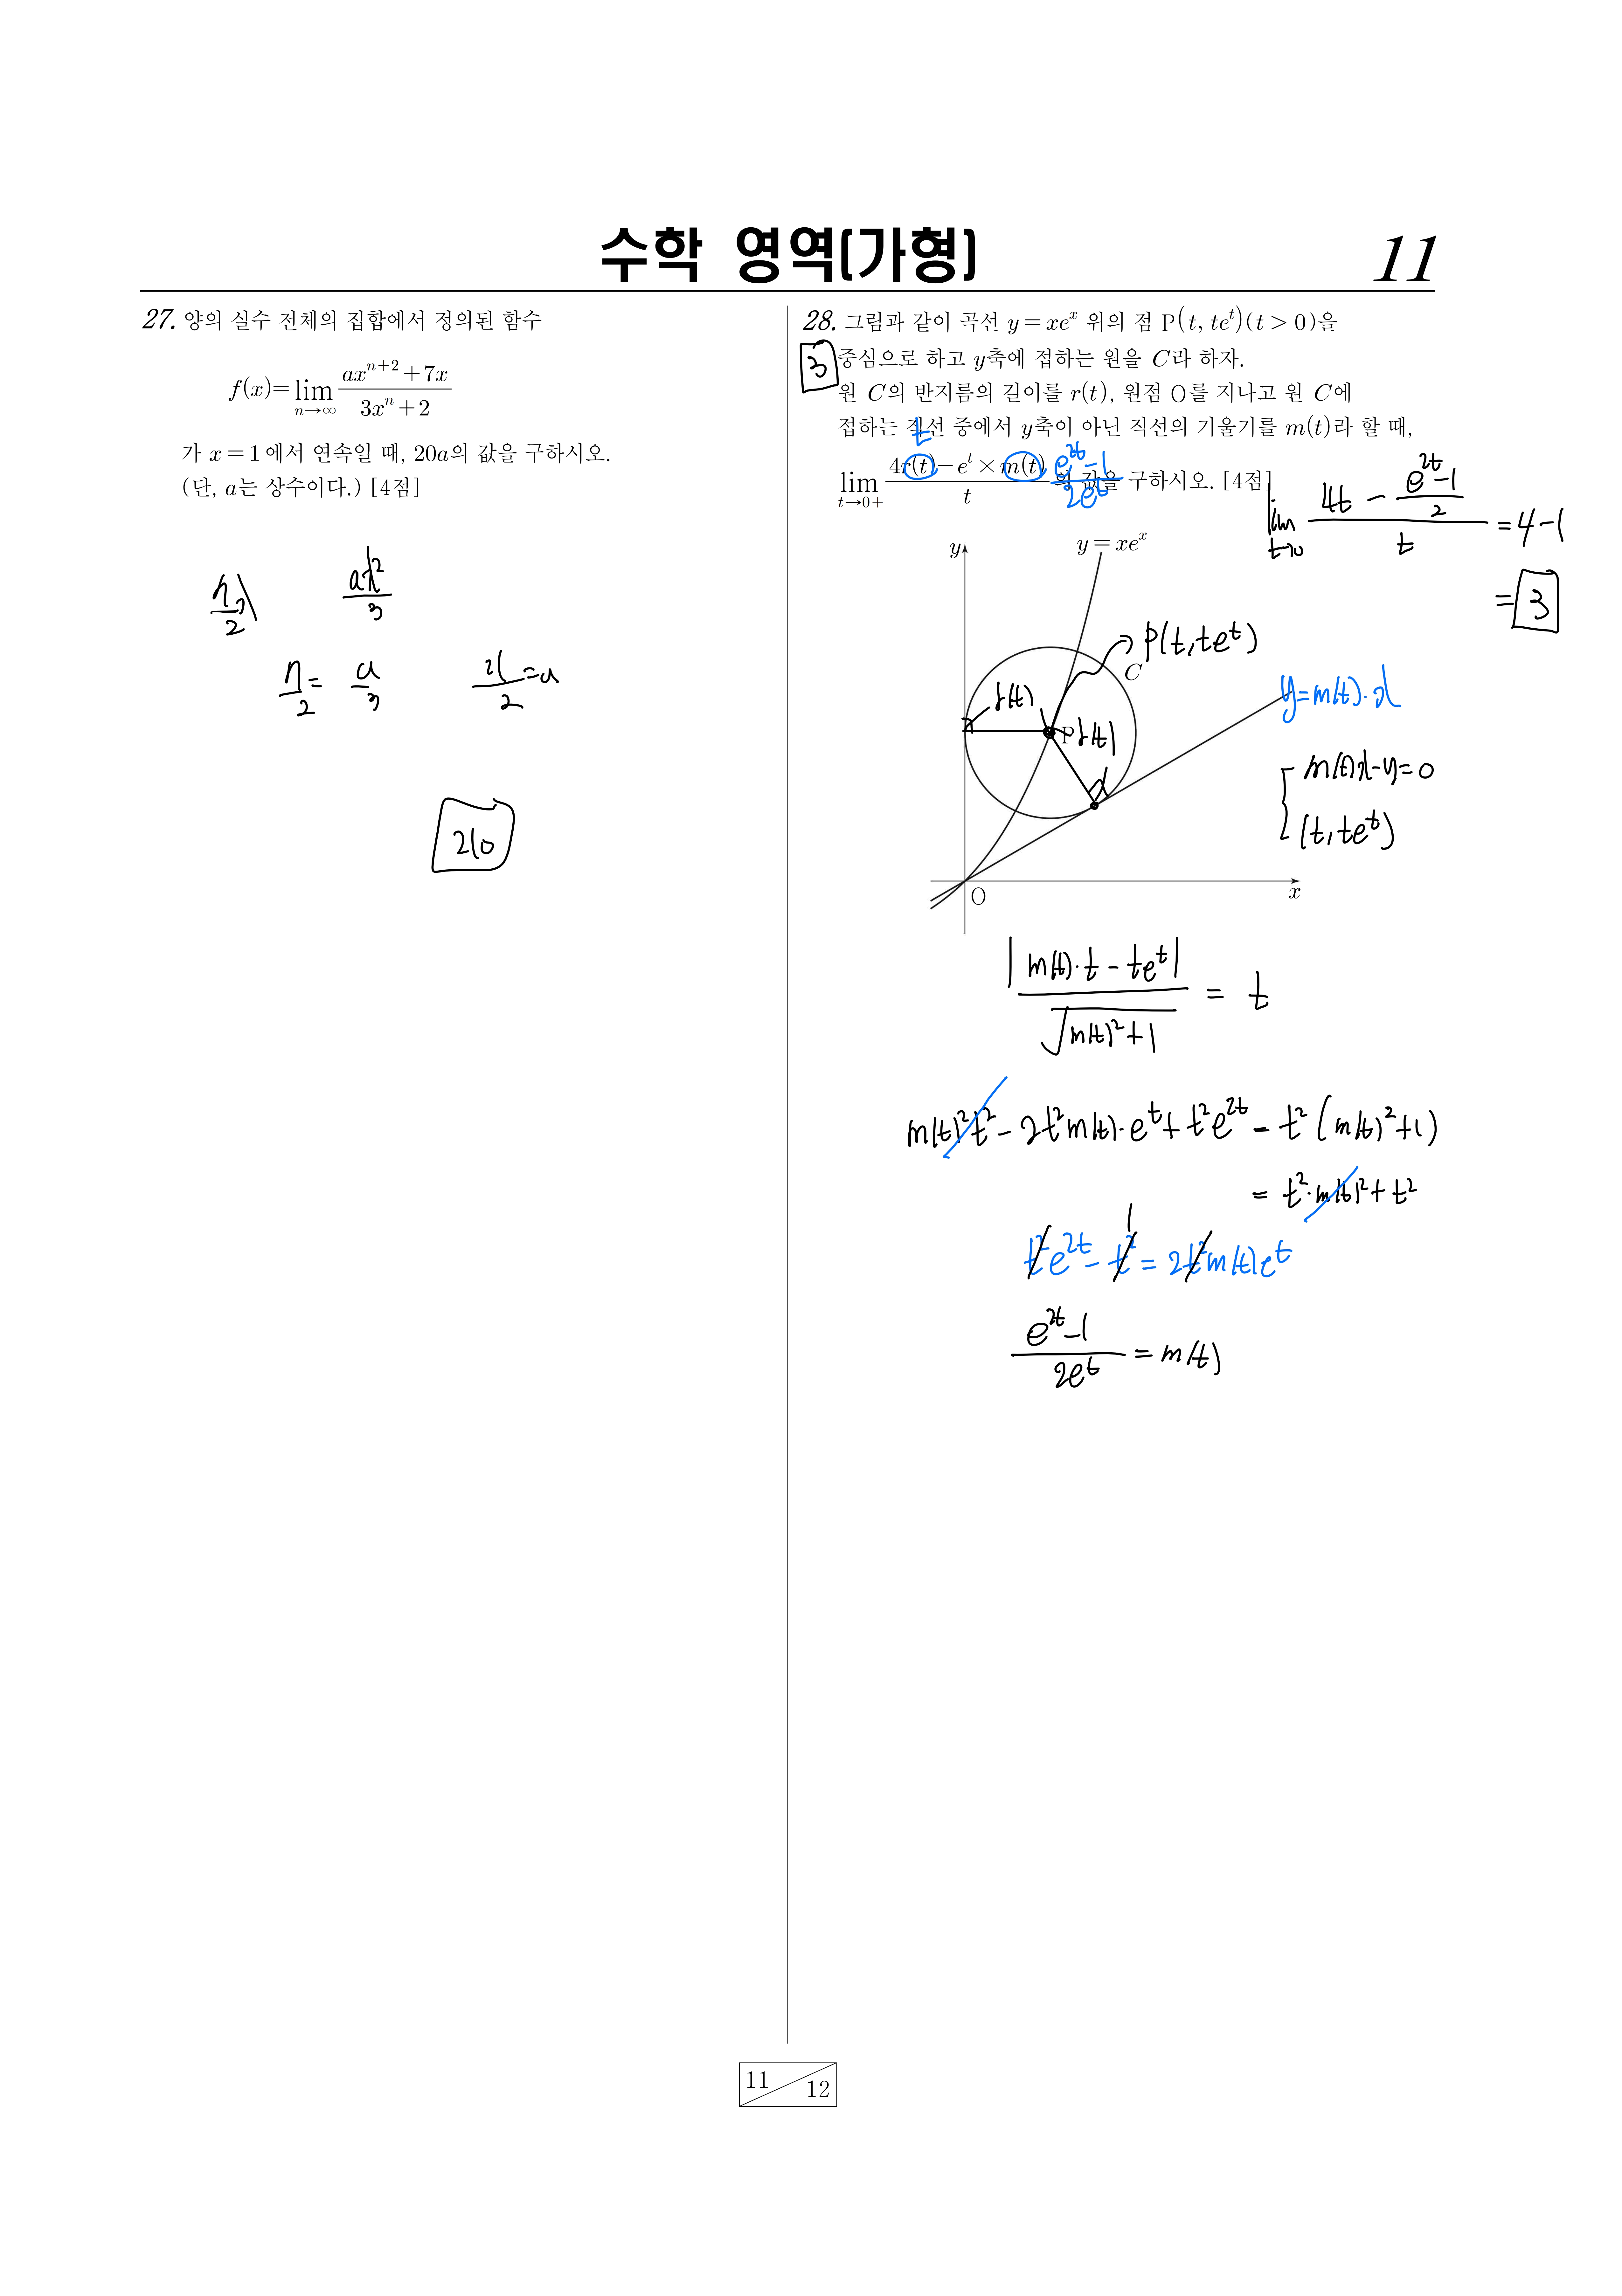 수학 영역(가형)
11
27. 양의 실수 전체의 집합에서 정의된 함수
f(x)=lim_{n→∞} (ax^{n+2}+7x)/(3x^n+2)
가 x=1에서 연속일 때, 20a의 값을 구하시오.
(단, a는 상수이다.) [4점]
ax²/3
7/2 = a/3
21/2 = a
210
28. 그림과 같이 곡선 y=xe^x 위의 점 P(t, te^t)(t>0)을
3
중심으로 하고 y축에 접하는 원을 C라 하자.
원 C의 반지름의 길이를 r(t), 원점 O를 지나고 원 C에
접하는 직선 중에서 y축이 아닌 직선의 기울기를 m(t)라 할 때,
t
lim_{t→0+} (4r(t)−e^t×m(t))/t 의 값을 구하시오. [4점]
(e^{2t}−1)/(2e^t)
lim_{t→0} (4t − (e^{2t}−1)/2)/t = 4−1
= 3
y
y=xe^x
P(t, te^t)
C
r(t)
P
r(t)
y=m(t)·x
m(t)x−y=0
(t, te^t)
O
x
|m(t)·t − te^t| / √(m(t)²+1) = t
m(t)²t² − 2t²m(t)·e^t + t²e^{2t} = t²(m(t)²+1)
= t²·m(t)²+t²
t²e^{2t} − t² = 2t²m(t)e^t
1
(e^{2t}−1)/(2e^t) = m(t)
11
12